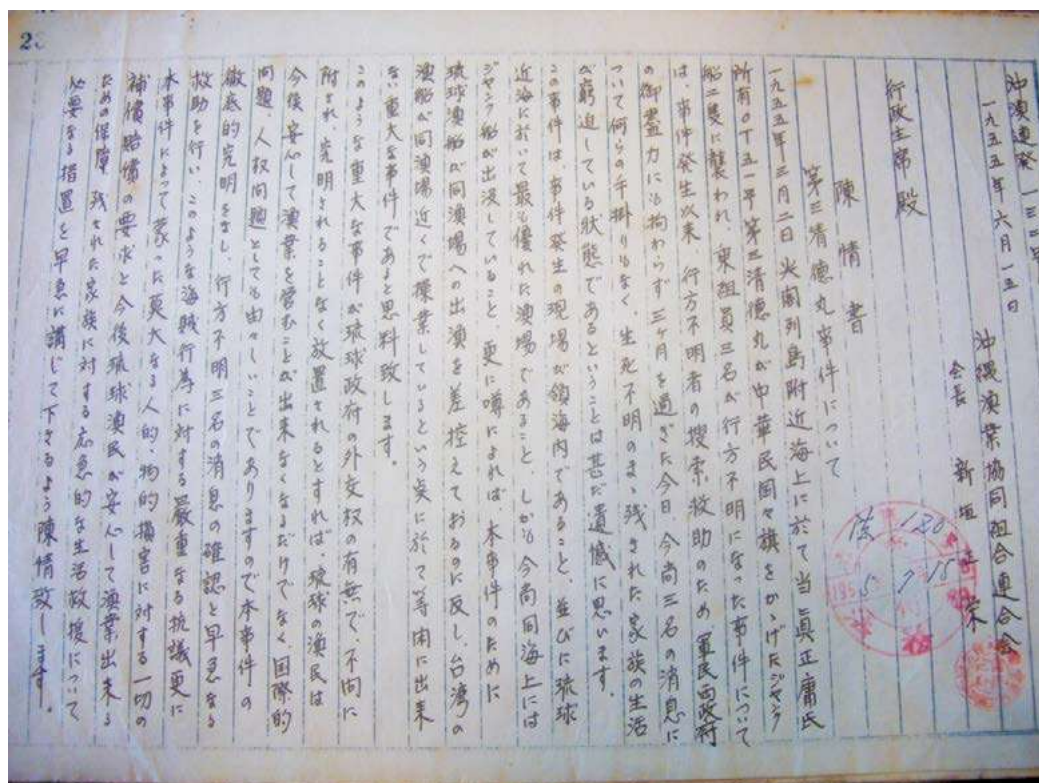 沖漁連発 一三二号
一九五五年六月一五日
沖縄漁業協同組合連合会
会長 新垣 栄
行政主席殿
陳情書
第三清徳丸事件について
一九五五年三月二日尖閣列島附近海上に於て当真正庸氏
所有OT五一号第三清徳丸が中華民国々旗をかゝげたジャンク
船二隻に襲われ、乗組員三名が行方不明になった事件について
は、事件発生以来、行方不明者の搜索救助のため軍民両政府
の御盡力にも拘わらず三ヶ月を過ぎた今日、今尚三名の消息に
ついて何らの手掛りもなく、生死不明のまゝ残された家族の生活
が窮迫している状態であるということは甚だ遺憾に思います。
この事件は、事件発生の現場が領海内であること、並びに琉球
近海に於いて最も優れた漁場であること、しかも今尚同海上には
ジャンク船が出没していること、更に噂によれば、本事件のために
琉球漁船が同漁場への出漁を差控えておるのに反し、台湾の
漁船が同漁場近くで操業しているという点に於て等閑に出来
ない重大な事件であると思料致します。
このような重大な事件が琉球政府の外交権の有無で、不問に
附され、究明されることなく放置されるとすれば、琉球の漁民は
今後安心して漁業を営むことが出来なくなるだけでなく、国際的
問題、人権問題としても由々しいことでありますので本事件の
徹底的究明をなし、行方不明三名の消息の確認と早急なる
救助を行い、このような海賊行為に対する厳重なる抗議更に
本事件によって蒙った莫大なる人的、物的損害に対する一切の
補償賠償の要求と今後琉球漁民が安心して漁業出来る
ための保障、残された家族に対する応急的な生活救援について
必要なる措置を早急に講じて下さるよう陳情致します。